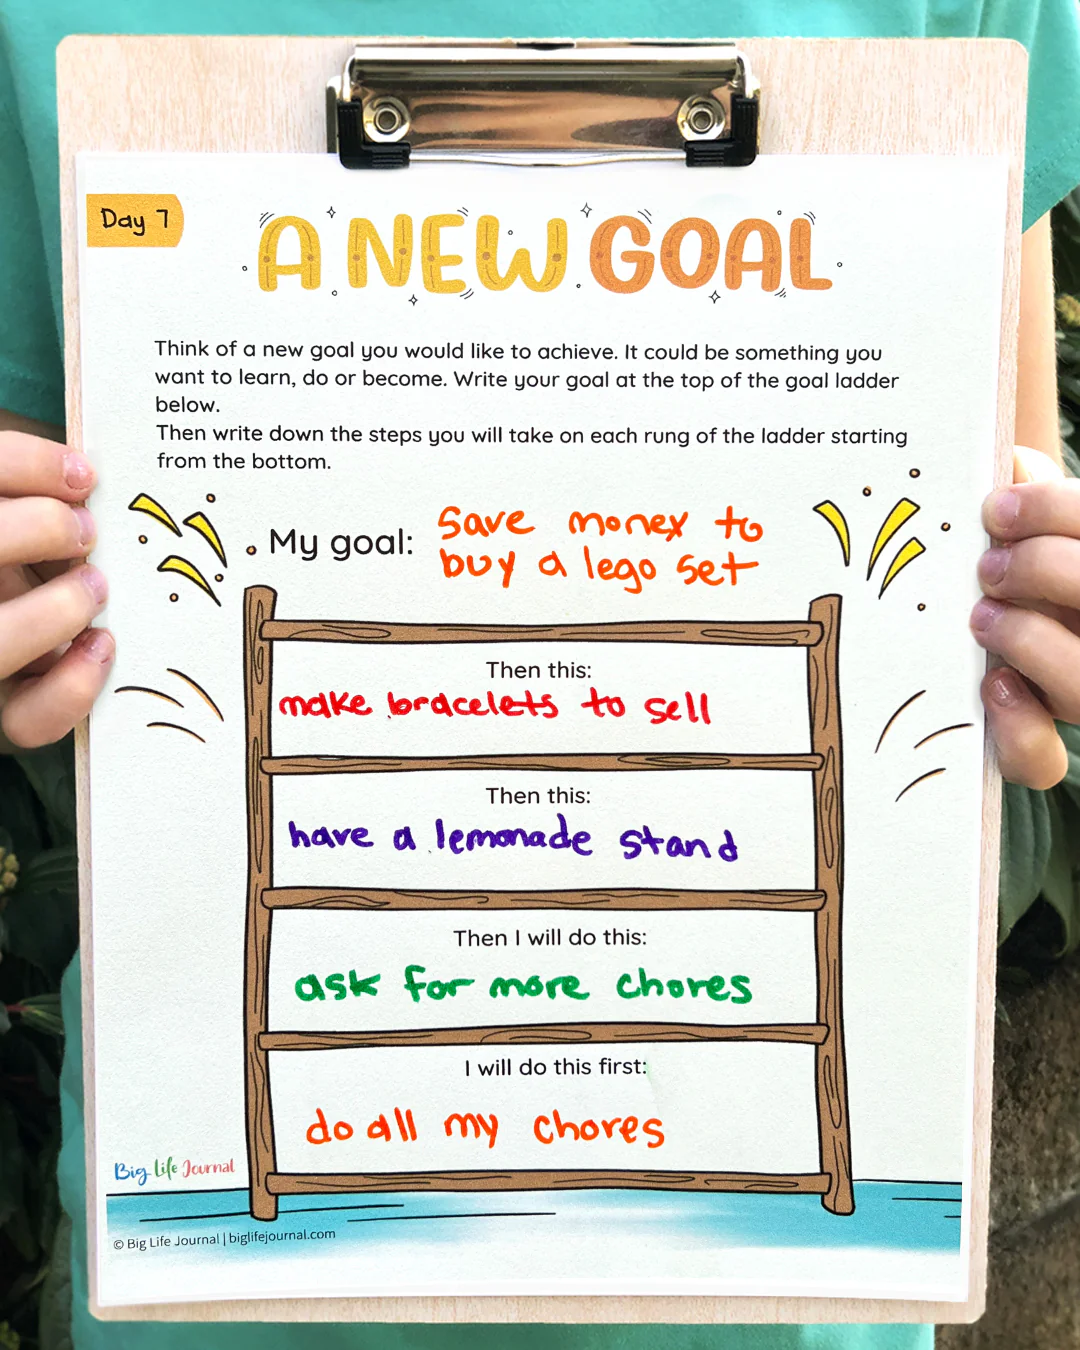 Day 7
A NEW GOAL
Think of a new goal you would like to achieve. It could be something you
want to learn, do or become. Write your goal at the top of the goal ladder
below.
Then write down the steps you will take on each rung of the ladder starting
from the bottom.
My goal: save money to
buy a lego set
Then this:
make bracelets to sell
Then this:
have a lemonade stand
Then I will do this:
ask for more chores
I will do this first:
do all my chores
Big Life Journal
© Big Life Journal | biglifejournal.com